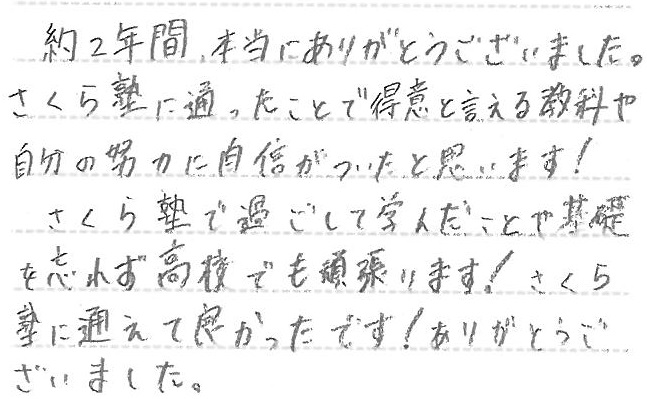 約2年間、本当にありがとうございました。
さくら塾に通ったことで得意と言える教科や
自分の努力に自信がついたと思います!
さくら塾で過ごして学んだことや基礎
を忘れず高校でも頑張ります!さくら
塾に通えて良かったです!ありがとうご
ざいました。